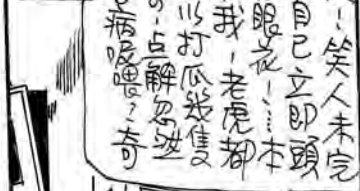 ～笑人未完
自己立即頭
眼花⋯本
我，老虎都
以打瓜幾隻
の，点解忽然
病㗎喂？奇